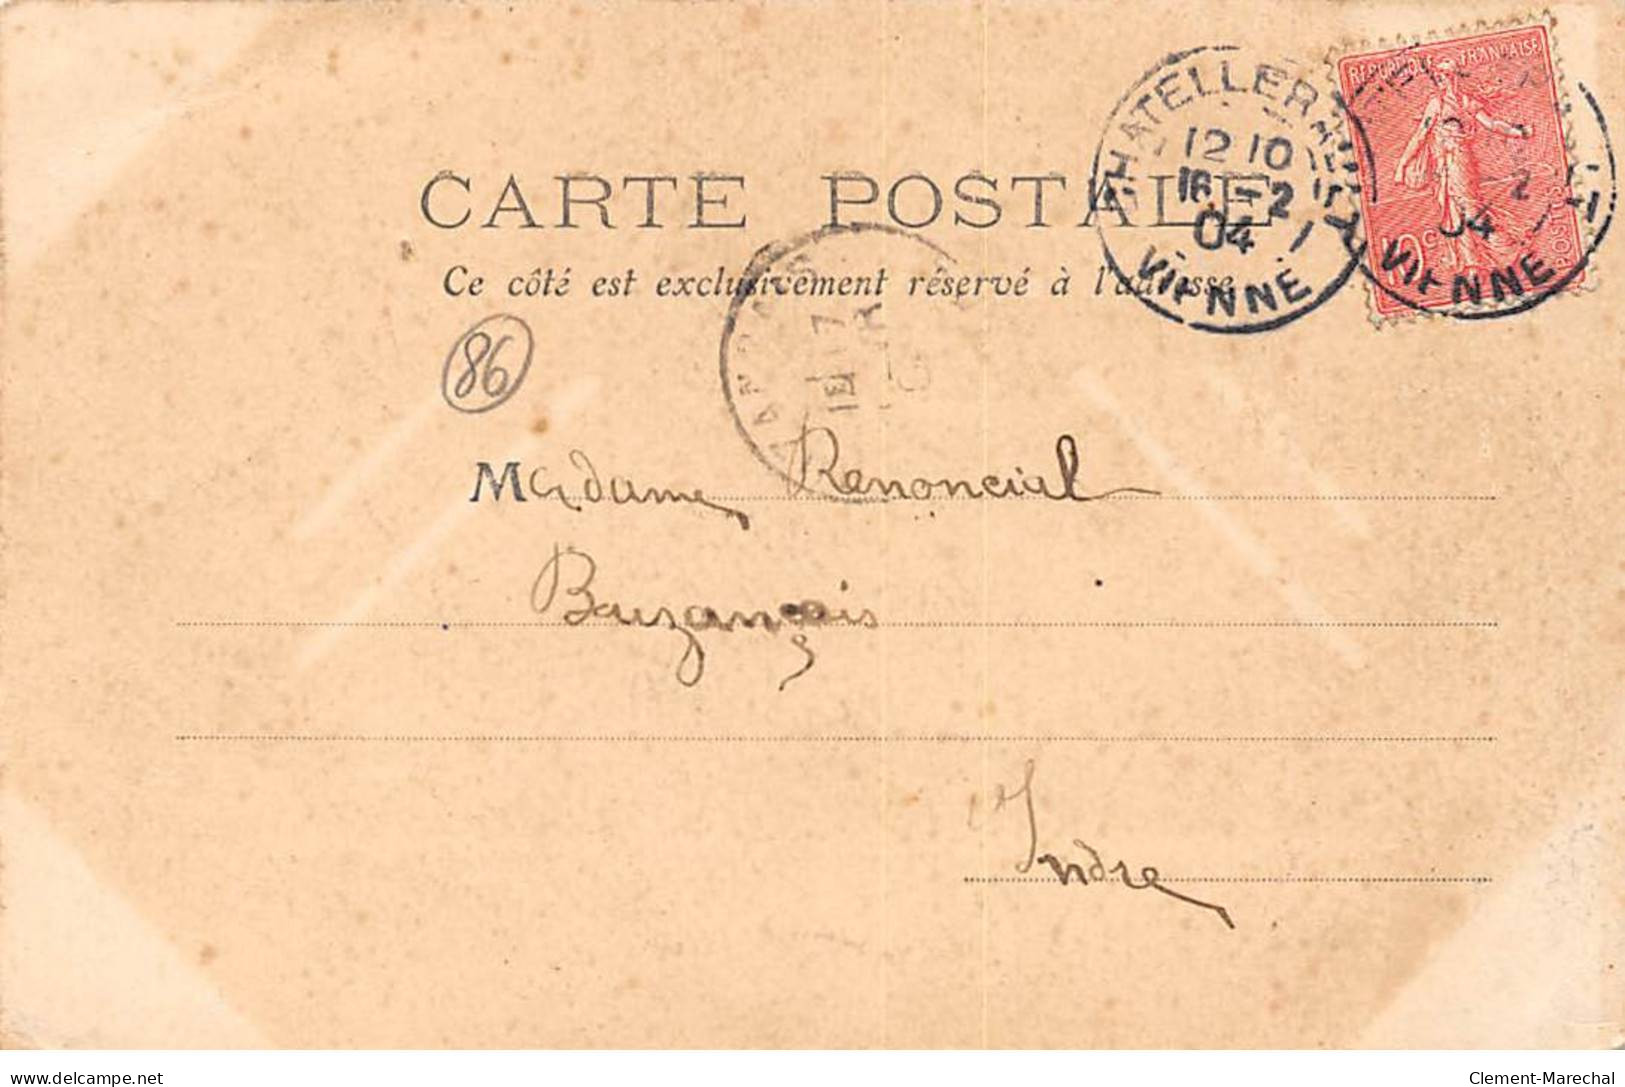 RÉPUBLIQUE FRANÇAISE
CHATELLERAULT
12 10
16 -2
04
VIENNE
-2
04
VIENNE
10 c
POSTES
CARTE POSTALE
Ce côté est exclusivement réservé à l'adresse
86
Madame Renoncial
Buzançais
Indre
delcampe.net
Clement-Marechal